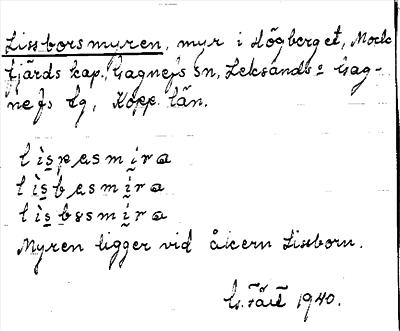 Lissborsmyren, myr i Högberget, Mock-
fjärds kap., Gagnefs sn, Leksands o Gag-
nefs tg, Kopp. län.
lìspasmira
lìsbasmira
lìsbssmira
Myren ligger vid åkern Lissborn.
1940.